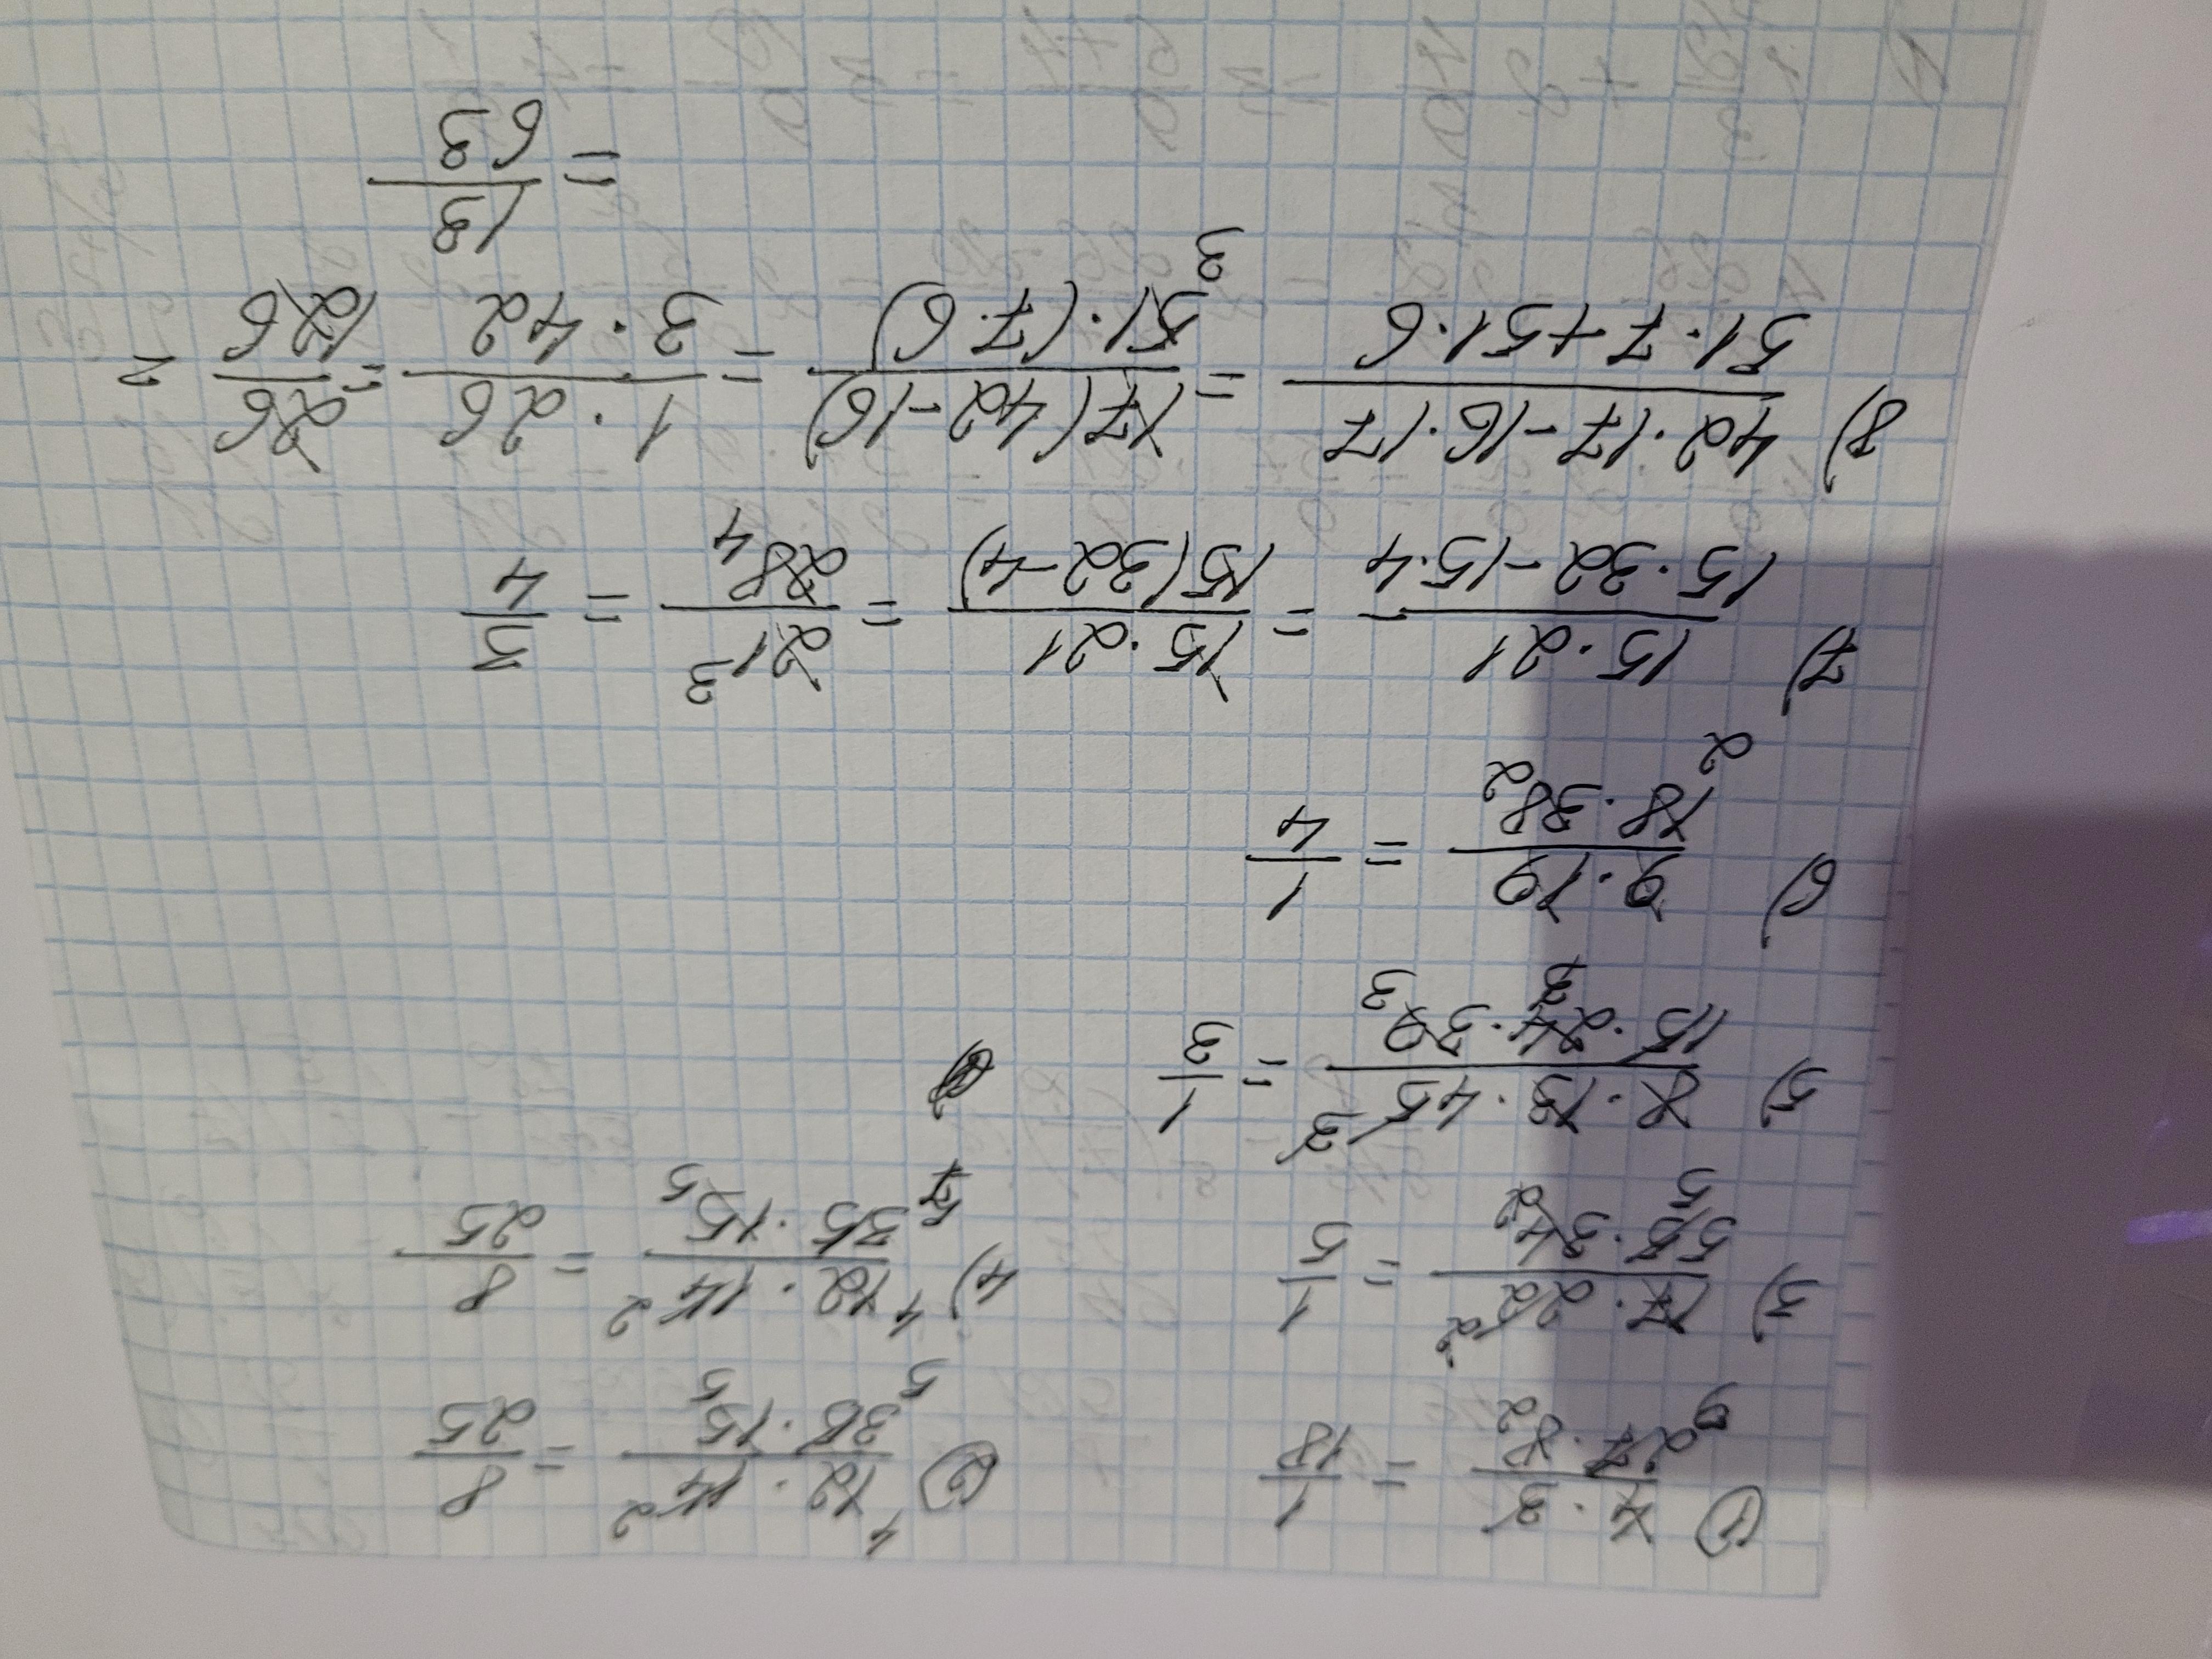 1) 4·3 / 27·8 = 1/18
9 2
2) 4 12·14 2 / 35·15 = 8/25
5 5
3) 17·22 2 / 55·34 2 = 1/5
5
4) 4 12·14 2 / 35·15 5 = 8/25
5 7
5) 8·13·45 3 / 15·24·39 3 = 1/3
6) 9·19 / 18·38 2 = 1/4
2
7) 15·21 / 15·32-15·4 = 15·21 / 15(32-4) = 21 3 / 28 4 = 3/4
8) 42·17-16·17 / 51·7+51·6 = 17(42-16) / 51·(7·6) = 1·26 / 3·42 = 26/126 =
3
= 13/63